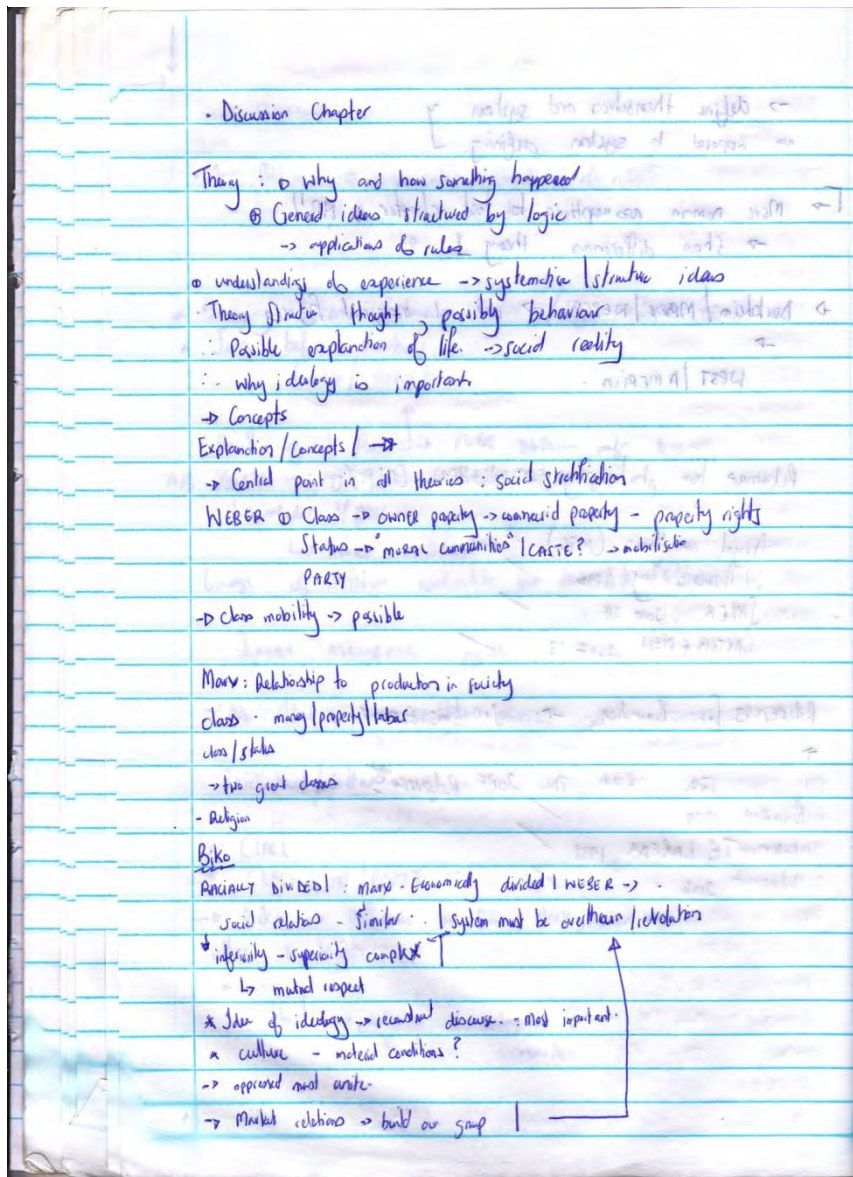 · Discussion Chapter
Theory : ⊙ Why and how something happened
⊙ General ideas structured by logic
-> applications of rules
⊙ understandings of experience -> systematise / structure ideas
· Theory structure thought, possibly behaviour
∴ Possible explanation of life. -> social reality
∴ why ideology is important
-> Concepts
Explanation / Concepts / ->
-> Central point in all theories : social stratification
WEBER ⊙ Class -> OWNER property -> commercial property - property rights
Status -> "MORAL communities" / CASTE? -> mobilisation
PARTY
-> Class mobility -> possible
Marx : Relationship to production in society
class · money/property/labour
class / status
-> two great classes
- Religion
Biko
RACIALLY DIVIDED / : Marx - Economically divided / WEBER -> ·
social relations - similar · · / system must be overthrown / revolution
* inferiority - superiority complex
↳ mutual respect
* Idea of ideology -> reconstruct discourse. = most important.
* culture - material conditions ?
-> oppressed must unite.
-> Market relations -> build our group /